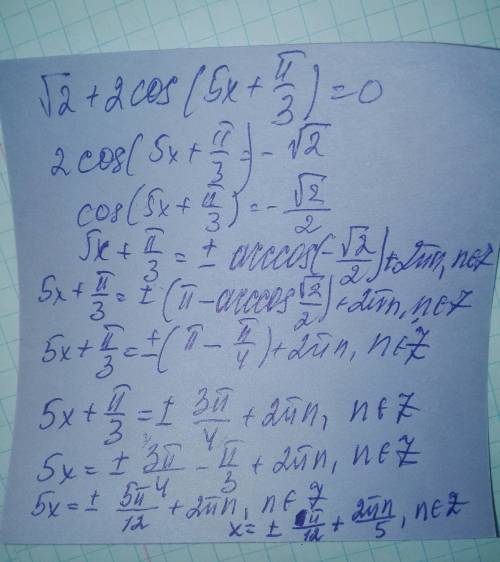 √2 + 2cos(5x + π/3) = 0
2cos(5x + π/3) = -√2
cos(5x + π/3) = -√2/2
5x + π/3 = ± arccos(-√2/2) + 2πn, n∈Z
5x + π/3 = ± (π - arccos √2/2) + 2πn, n∈Z
5x + π/3 = ± (π - π/4) + 2πn, n∈Z
5x + π/3 = ± 3π/4 + 2πn, n∈Z
5x = ± 3π/4 - π/3 + 2πn, n∈Z
5x = ± 5π/12 + 2πn, n∈Z
x = ± π/12 + 2πn/5, n∈Z